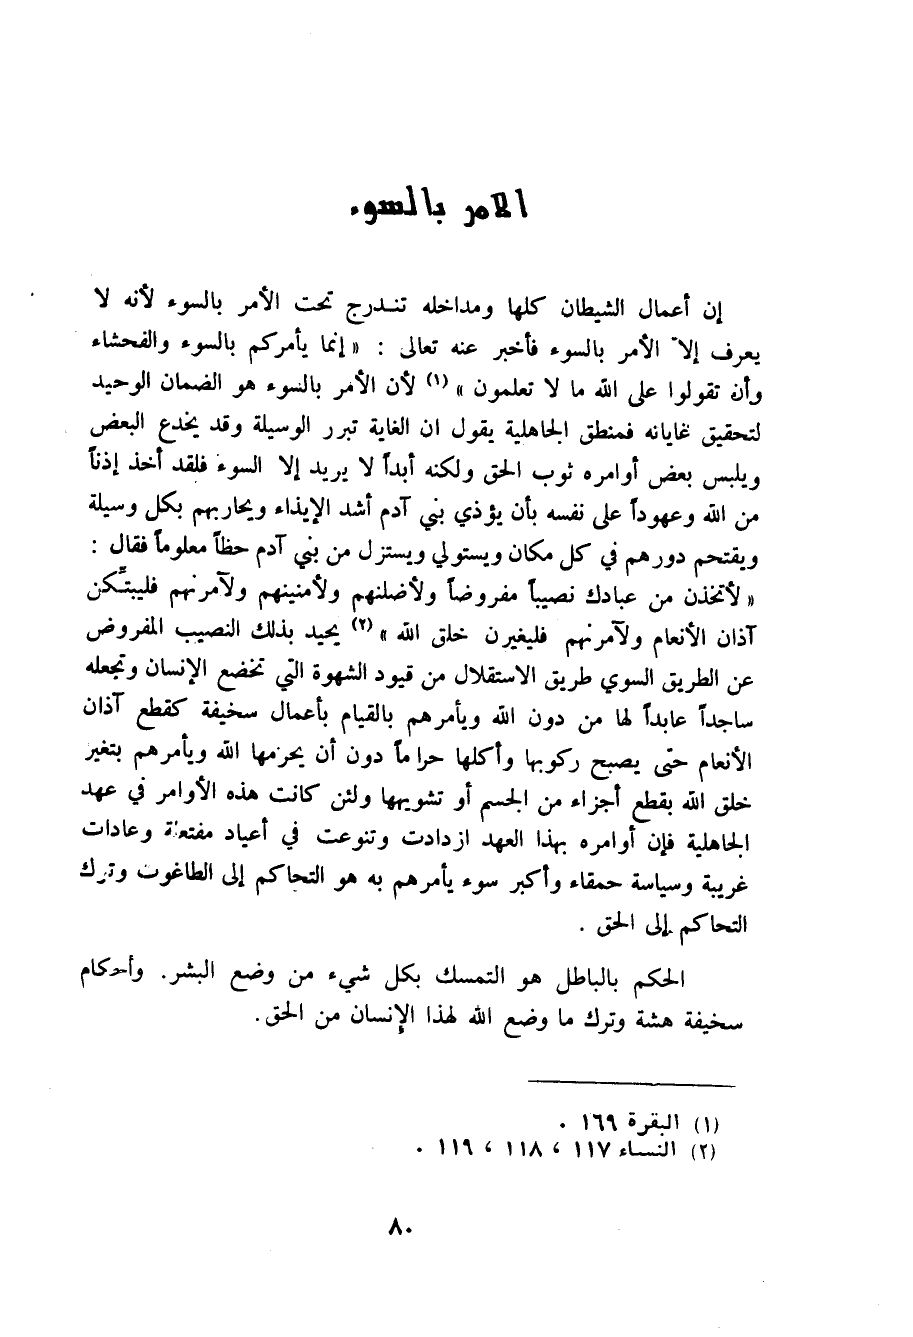 الامر بالسوء
إن أعمال الشيطان كلها ومداخله تندرج تحت الأمر بالسوء لأنه لا
يعرف إلا الأمر بالسوء فأخبر عنه تعالى : « إنما يأمركم بالسوء والفحشاء
وأن تقولوا على الله ما لا تعلمون » (١) لأن الأمر بالسوء هو الضمان الوحيد
لتحقيق غاياته فمنطق الجاهلية يقول ان الغاية تبرر الوسيلة وقد يخدع البعض
ويلبس بعض أوامره ثوب الحق ولكنه أبداً لا يريد إلا السوء فلقد أخذ إذناً
من الله وعهوداً على نفسه بأن يؤذي بني آدم أشد الإيذاء ويحاربهم بكل وسيلة
ويقتحم دورهم في كل مكان ويستولي ويستزل من بني آدم حظاً معلوماً فقال :
« لأتخذن من عبادك نصيباً مفروضاً ولأضلنهم ولأمنينهم ولآمرنهم فليبتّكن
آذان الأنعام ولآمرنهم فليغيرن خلق الله » (٢) يحيد بذلك النصيب المفروض
عن الطريق السوي طريق الاستقلال من قيود الشهوة التي تخضع الإنسان وتجعله
ساجداً عابداً لها من دون الله ويأمرهم بالقيام بأعمال سخيفة كقطع آذان
الأنعام حتى يصبح ركوبها وأكلها حراماً دون أن يحرمها الله ويأمرهم بتغير
خلق الله بقطع أجزاء من الجسم أو تشويهها ولئن كانت هذه الأوامر في عهد
الجاهلية فإن أوامره بهذا العهد ازدادت وتنوعت في أعياد مفتعلة وعادات
غريبة وسياسة حمقاء وأكبر سوء يأمرهم به هو التحاكم إلى الطاغوت وترك
التحاكم إلى الحق .
الحكم بالباطل هو التمسك بكل شيء من وضع البشر. وأحكام
سخيفة هشة وترك ما وضع الله لهذا الإنسان من الحق.
(١) البقرة ١٦٩ .
(٢) النساء ١١٧ ، ١١٨ ، ١١٩ .
٨٠